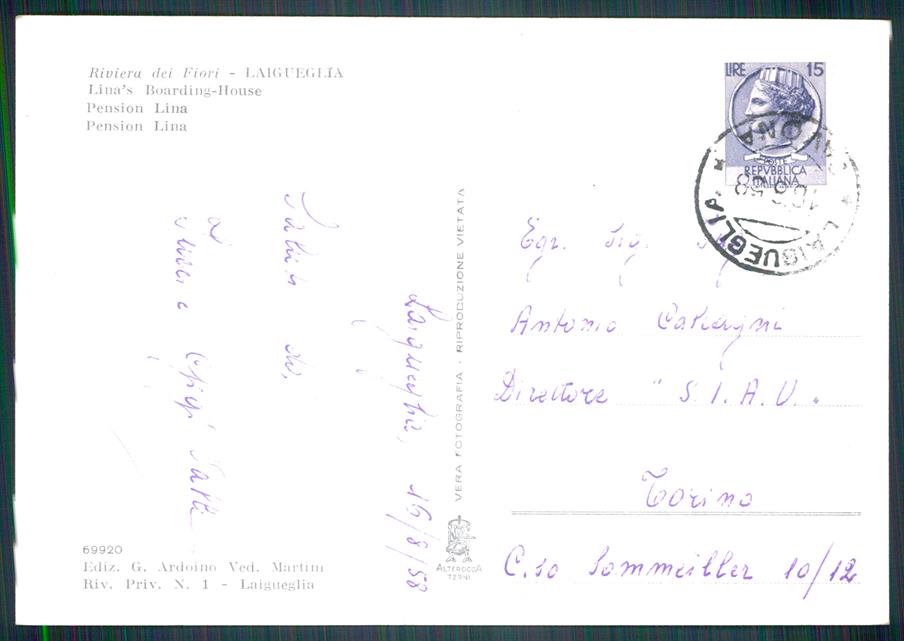 Riviera dei Fiori - LAIGUEGLIA
Lina's Boarding-House
Pension Lina
Pension Lina
LIRE 15
POSTE
REPVBBLICA
ITALIANA
LAIGUEGLIA * SAVONA *
Laigueglia, 16/8/58
Saluti da,
VERA FOTOGRAFIA - RIPRODUZIONE VIETATA
ALTEROCCA
TERNI
Egr. Sig.
Antonio
Direttore "S.I.A.U."
Torino
C.so Sommeiller 10/12
69920
Ediz. G. Ardoino Ved. Martini
Riv. Priv. N. 1 - Laigueglia